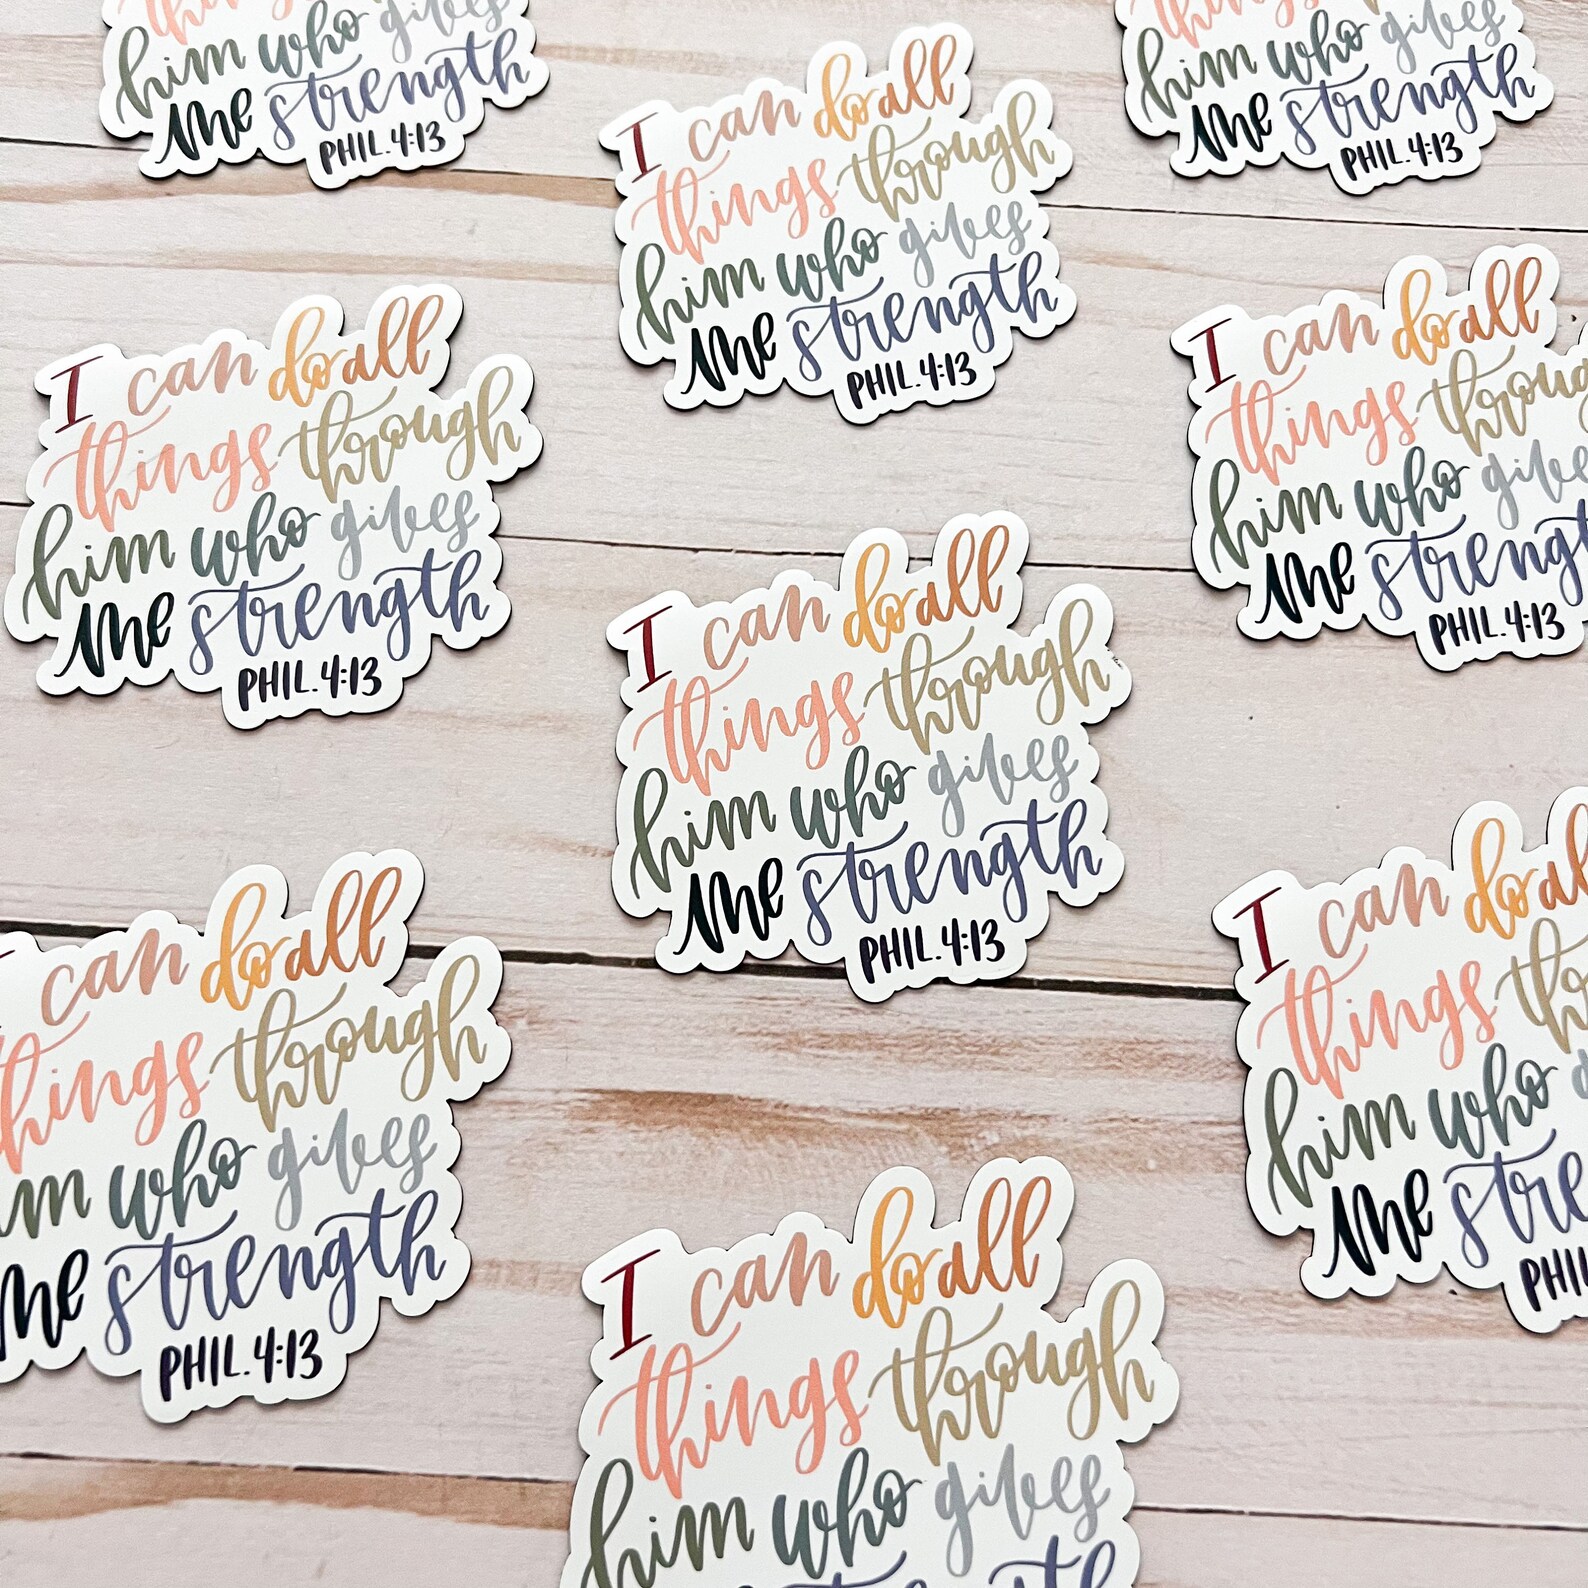 things
him who gives
me strength
PHIL. 4:13
I can do all
things through
him who gives
me strength
PHIL. 4:13
things
him who gives
me strength
PHIL. 4:13
I can do all
things through
him who gives
me strength
PHIL. 4:13
I can do all
things through
him who gives
me strength
PHIL. 4:13
I can do all
things through
him who gives
me strength
PHIL. 4:13
can do all
things through
him who gives
me strength
PHIL. 4:13
I can do all
things
him who
me stre
PHIL
I can do all
things through
him who gives